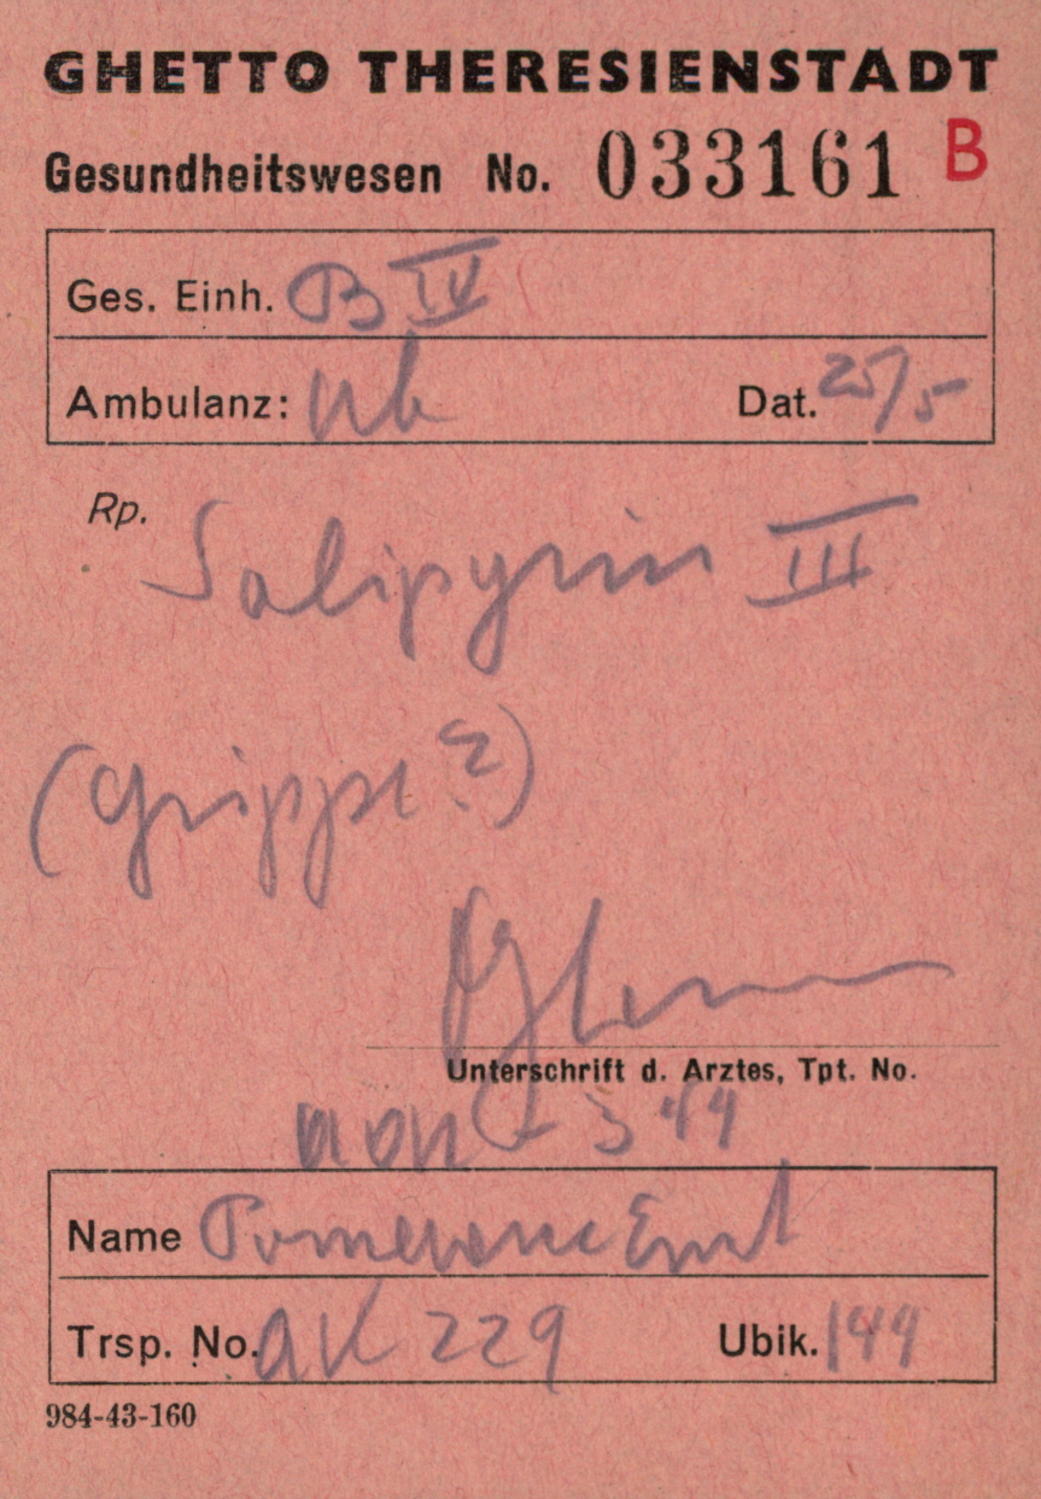 GHETTO THERESIENSTADT
Gesundheitswesen No. 033161 B
Ges. Einh. B IV
Ambulanz: Dat. 25/5
Rp. Salipyrin III
(Grippe?)
Unterschrift d. Arztes, Tpt. No.
344
Name Pomeranc Emil
Trsp. No. AK 229 Ubik. 144
984-43-160